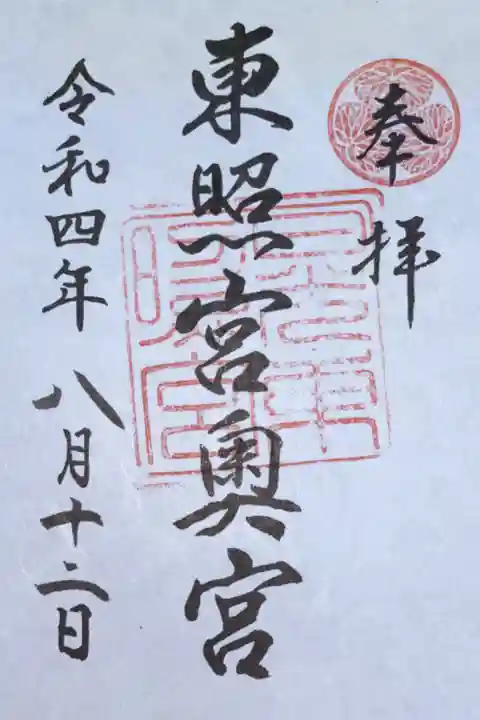 奉拝
東照宮奥宮
令和四年 八月十二日